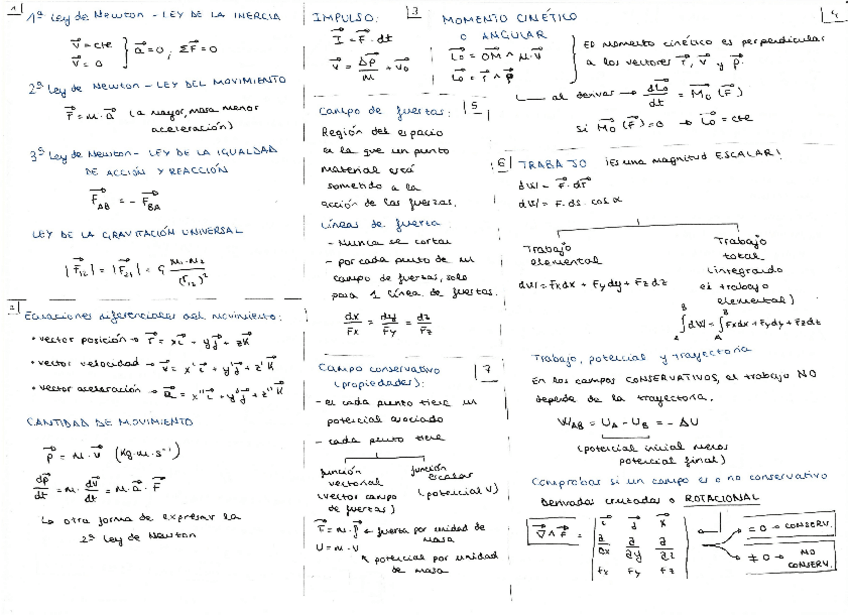 1
1ª Ley de Newton - LEY DE LA INERCIA
V⃗ = cte
V⃗ = 0
} a⃗ = 0 ; ΣF⃗ = 0
2ª Ley de Newton - LEY DEL MOVIMIENTO
F⃗ = m · a⃗ (a mayor, masa menor
aceleración)
3ª Ley de Newton - LEY DE LA IGUALDAD
DE ACCIÓN Y REACCIÓN
F⃗AB = - F⃗BA
LEY DE LA GRAVITACIÓN UNIVERSAL
|F⃗12| = |F⃗21| = G m1 · m2 / (r12)²
2
Ecuaciones diferenciales del movimiento:
• vector posición → r⃗ = x i⃗ + y j⃗ + z k⃗
• vector velocidad → v⃗ = x' i⃗ + y' j⃗ + z' k⃗
• vector aceleración → a⃗ = x'' i⃗ + y'' j⃗ + z'' k⃗
CANTIDAD DE MOVIMIENTO
p⃗ = m · v⃗ (Kg·m·s⁻¹)
dp⃗/dt = m · dv⃗/dt = m · a⃗ · F⃗
↳ otra forma de expresar la
2ª Ley de Newton
IMPULSO: 3
I⃗ = F⃗ · dt
v⃗ = Δp⃗/m + v⃗0
Campo de fuerzas: 5
Región del espacio
en la que un punto
material está
sometido a la
acción de las fuerzas.
Líneas de fuerza:
- Nunca se cortan
- por cada punto de un
campo de fuerzas, solo
pasa 1 línea de fuerzas.
dx/Fx = dy/Fy = dz/Fz
Campo conservativo 7
(propiedades):
- en cada punto tiene un
potencial asociado
- cada punto tiene
función vectorial (vector campo de fuerzas)
función escalar (potencial V)
F⃗ = m · g⃗ ← fuerza por unidad de
masa
U = m · V
↖ potencial por unidad
de masa
MOMENTO CINÉTICO 4
O ANGULAR
L⃗o = OM⃗ ∧ m · v⃗
L⃗o = r⃗ ∧ p⃗
} El momento cinético es perpendicular
a los vectores r⃗, v⃗ y p⃗.
↳ al derivar → dL⃗o/dt = M⃗o (F⃗)
si M⃗o (F⃗) = 0 → L⃗o = cte
6 TRABAJO ¡Es una magnitud ESCALAR!
dW = F⃗ · dr⃗
dW = F · ds · cos α
Trabajo
elemental
dW = Fxdx + Fydy + Fzdz
Trabajo
total
(integrando
el trabajo
elemental)
∫AB dW = ∫AB Fxdx + Fydy + Fzdz
Trabajo, potencial y trayectoria
En los campos CONSERVATIVOS, el trabajo NO
depende de la trayectoria.
WAB = UA - UB = - ΔU
(potencial inicial menos
potencial final)
Comprobar si un campo es o no conservativo
Derivadas cruzadas o ROTACIONAL
∇⃗ ∧ F⃗ = | i⃗ j⃗ k⃗ |
| ∂/∂x ∂/∂y ∂/∂z |
| Fx Fy Fz |
= 0 → CONSERV.
≠ 0 → NO
CONSERV.